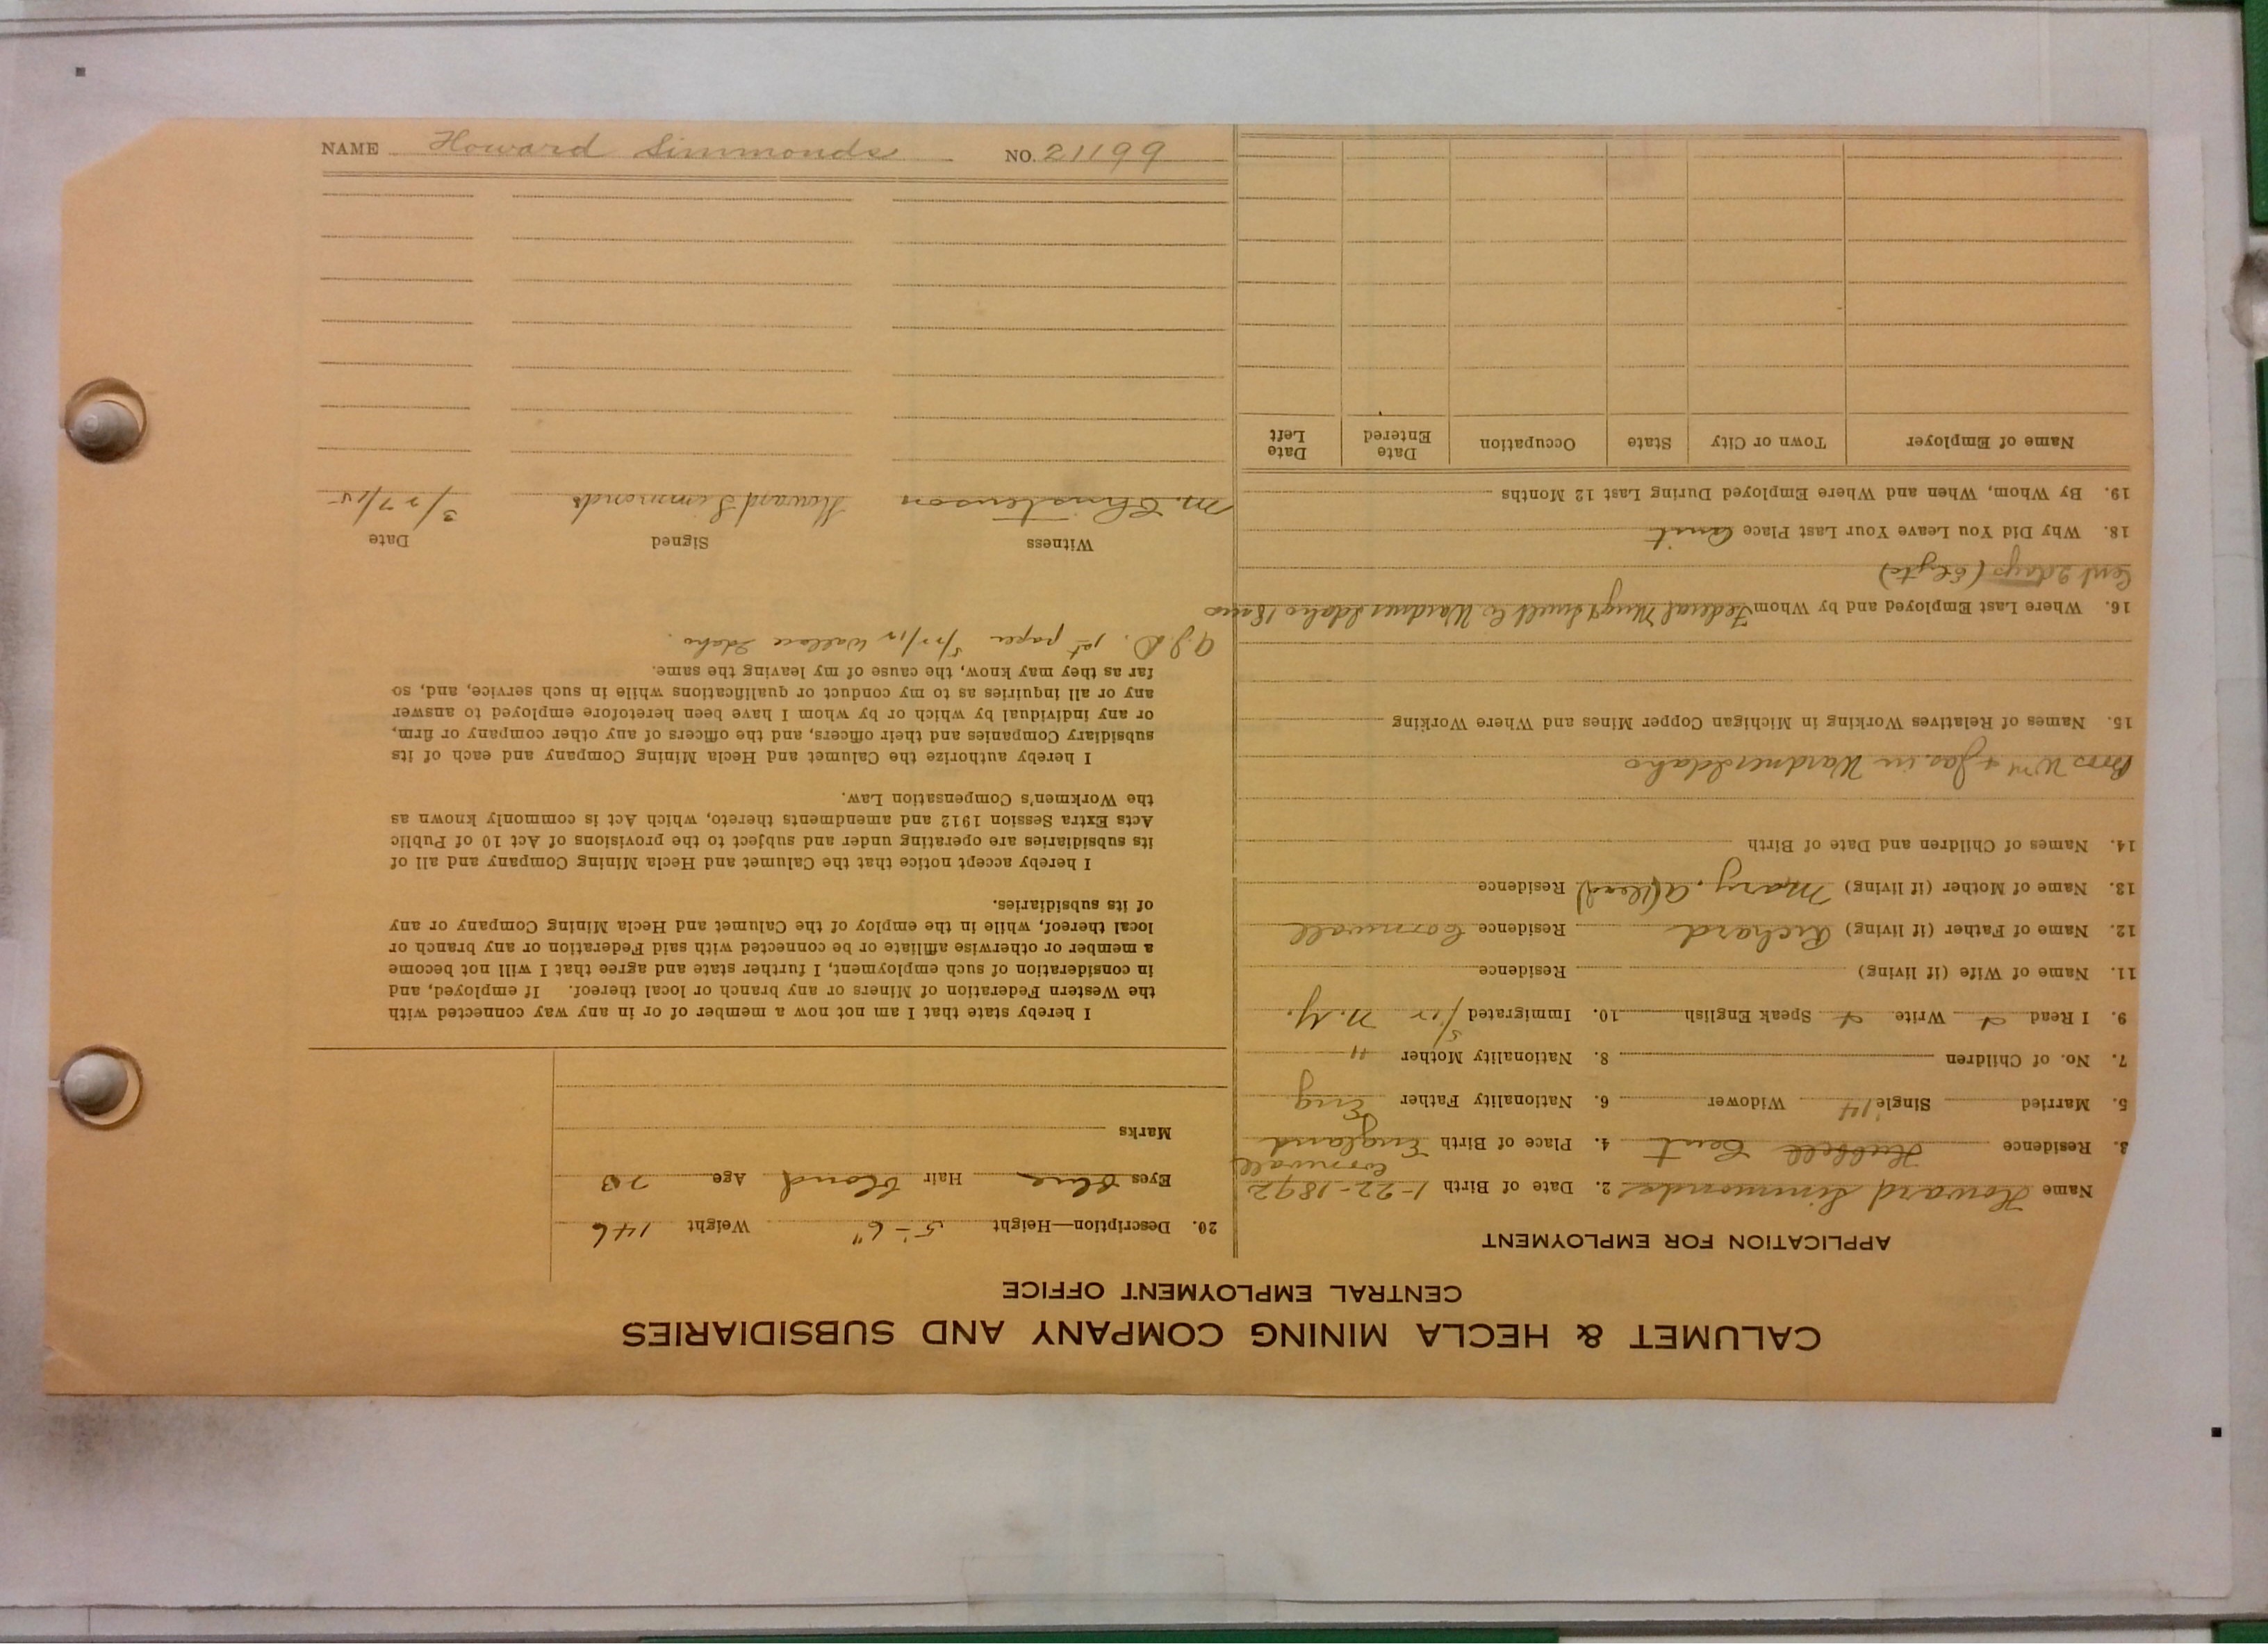 CALUMET & HECLA MINING COMPANY AND SUBSIDIARIES
CENTRAL EMPLOYMENT OFFICE
APPLICATION FOR EMPLOYMENT
Name Howard Simmonds 2. Date of Birth 1-22-1892
Cornwall
3. Residence Hubbell Cent 4. Place of Birth England
5. Married Single 14 Widower 6. Nationality Father Eng
7. No. of Children 8. Nationality Mother "
9. I Read Write Speak English 10. Immigrated 5/12 N.Y.
11. Name of Wife (if living) Residence
12. Name of Father (if living) Richard Residence Cornwall
13. Name of Mother (if living) Mary. A (Dead) Residence
14. Names of Children and Date of Birth
Bros Wm + Jas. in Wardner Idaho
15. Names of Relatives Working in Michigan Copper Mines and Where Working
16. Where Last Employed and by Whom Federal Mng & Smelt Co Wardner Idaho 18 mo
Cent 2 days
18. Why Did You Leave Your Last Place Quit
19. By Whom, When and Where Employed During Last 12 Months
Name of Employer Town or City State Occupation Date Entered Date Left
20. Description—Height 5'-6" Weight 146
Eyes Blue Hair blond Age 23
Marks
I hereby state that I am not now a member of or in any way connected with
the Western Federation of Miners or any branch or local thereof. If employed, and
in consideration of such employment, I further state and agree that I will not become
a member or otherwise affiliate or be connected with said Federation or any branch or
local thereof, while in the employ of the Calumet and Hecla Mining Company or any
of its subsidiaries.
I hereby accept notice that the Calumet and Hecla Mining Company and all of
its subsidiaries are operating under and subject to the provisions of Act 10 of Public
Acts Extra Session 1912 and amendments thereto, which Act is commonly known as
the Workmen's Compensation Law.
I hereby authorize the Calumet and Hecla Mining Company and each of its
subsidiary Companies and their officers, and the officers of any other company or firm,
or any individual by which or by whom I have been heretofore employed to answer
any or all inquiries as to my conduct or qualifications while in such service, and, so
far as they may know, the cause of my leaving the same.
1st paper 5/22/12 Wallace Idaho.
Witness Signed Date
M. Christenson Howard Simmonds 3/27/15
NAME Howard Simmonds NO. 21199